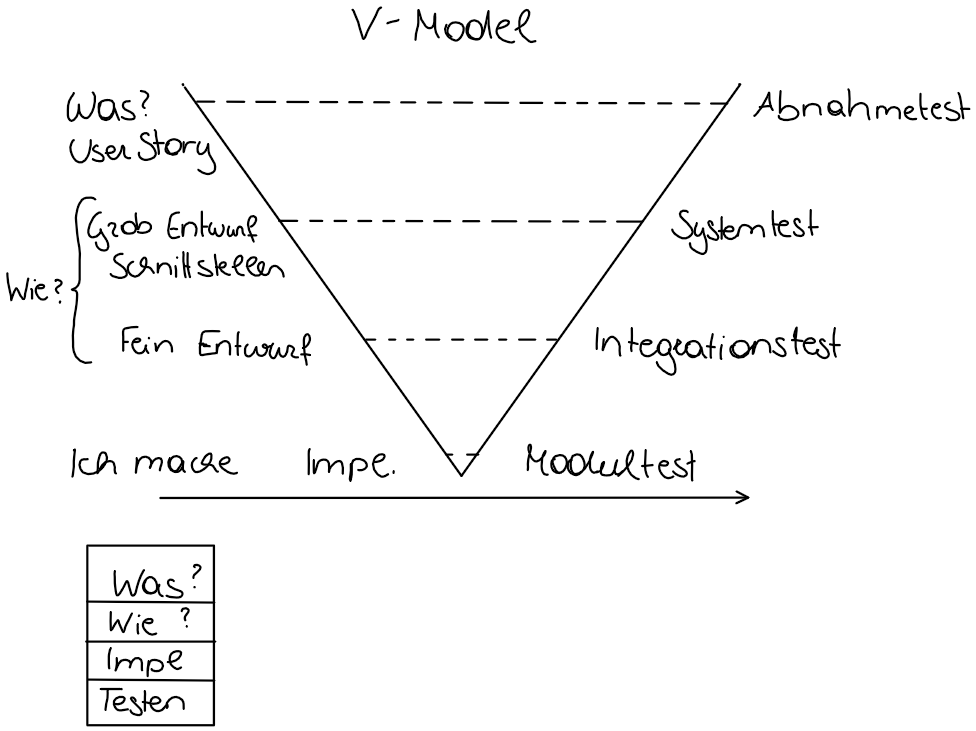 V-Model
Was?
User Story
Abnahmetest
Grob Entwurf
Schnittstellen
Systemtest
Wie?
Fein Entwurf
Integrationstest
Ich mache
Impl.
Modultest
Was?
Wie ?
Impl
Testen